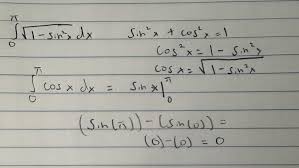 ∫₀^π √(1-sin²x) dx    sin²x + cos²x = 1
cos²x = 1 - sin²x
cosx = √(1-sin²x)
∫₀^π cosx dx = sinx |₀^π
(sin(π)) - (sin(0)) =
(0) - (0) = 0